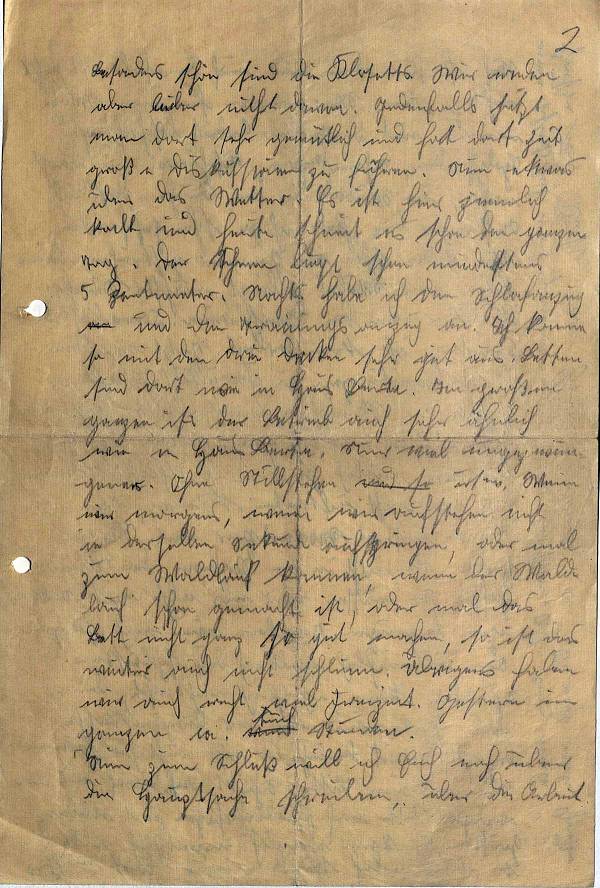 2
besonders schön sind die Klosetts. Wir reden
aber lieber nicht davon. Jedenfalls sitzt
man dort sehr gemütlich und hat dort Zeit
große Diskussionen zu führen. Nun etwas
über das Wetter. Es ist hier ziemlich
kalt und heute schneit es schon den ganzen
Tag. Der Schnee liegt schon mindestens
5 Zentimeter. Nachts habe ich den Schlafanzug
und den Trainingsanzug an. Ich komme
so mit den drei Decken sehr gut aus. Betten
sind dort wie in Haus Berta. Im großen
ganzen ist der Betrieb auch sehr ähnlich
wie in Haus Berta. Nur viel ungezwun-
gener. Ohne Stillstehen und so usw. Wenn
wir morgens, wenn wir aufstehen nicht
in derselben Sekunde aufspringen, oder mal
zum Waldlauf kommen, wenn der Wald-
lauf schon gemacht ist, oder mal das
Bett nicht ganz so gut machen, so ist das
weiter auch nicht schlimm. Übrigens haben
wir auch recht viel Freizeit. Gestern im
ganzen ca. Stunden.
Nun zum Schluß will ich Euch noch über
die Hauptsache schreiben, über die Arbeit.